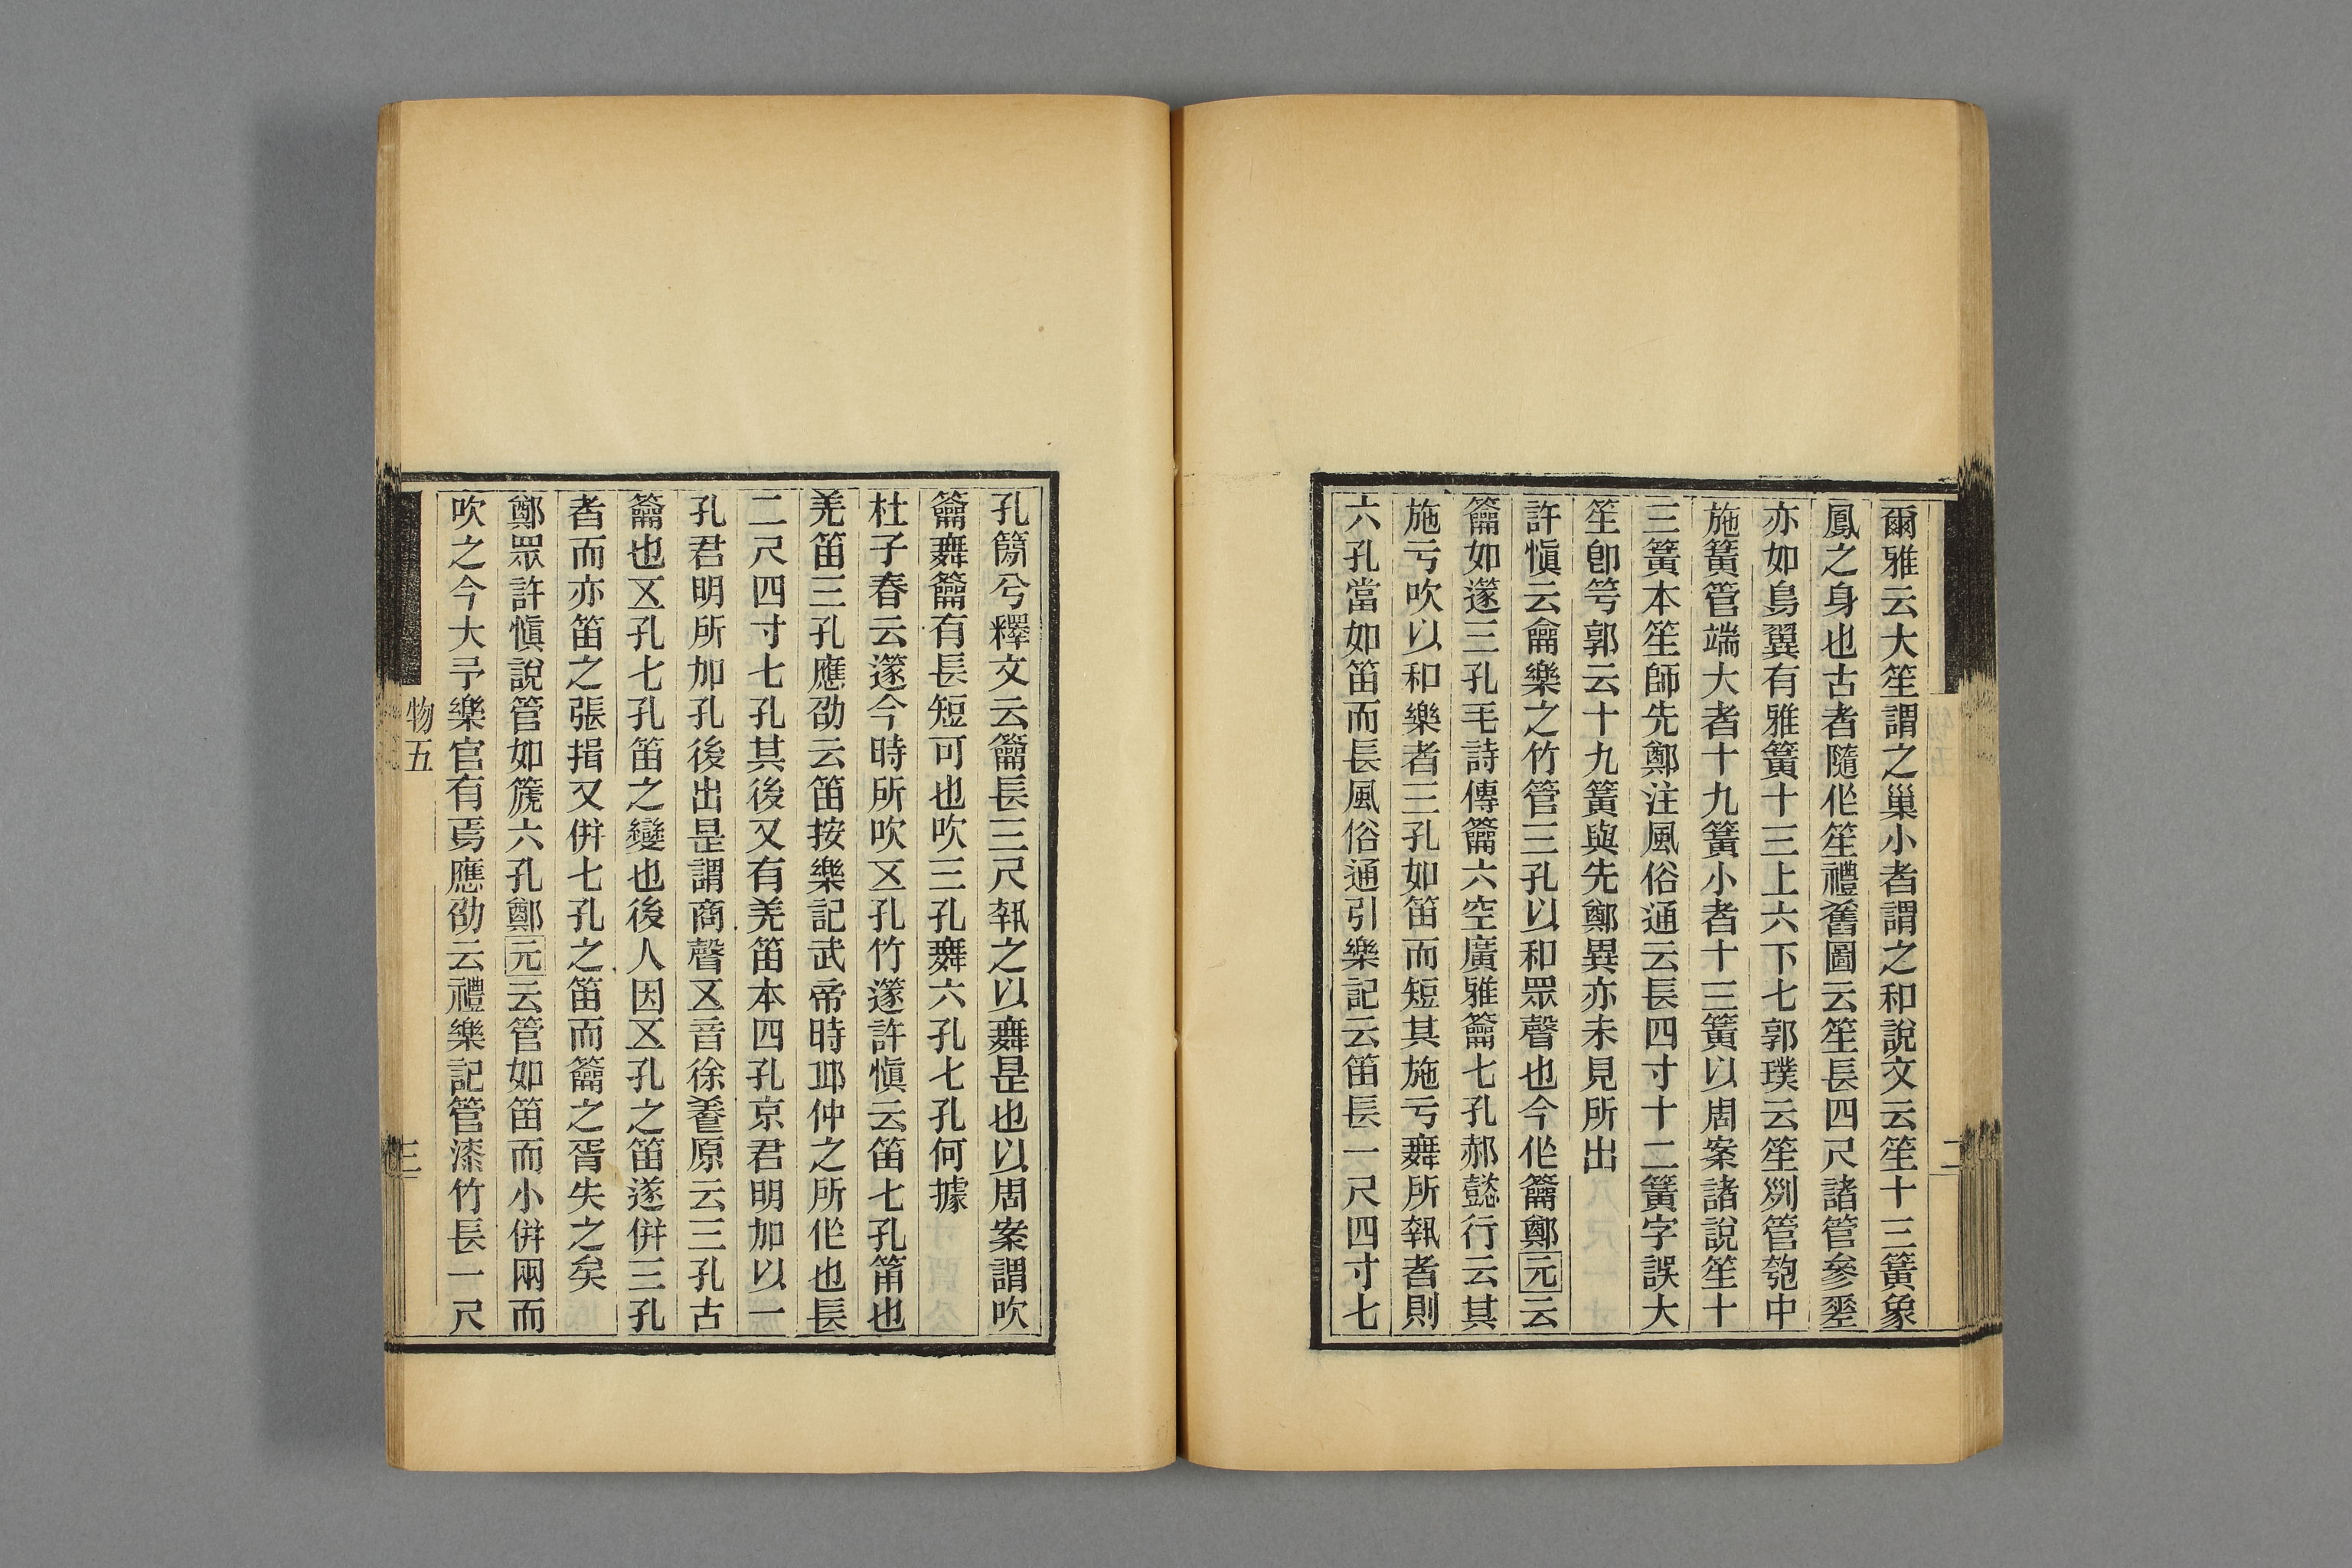 爾雅云大笙謂之巢小者謂之和說文云笙十三簧象
鳳之身也古者隨作笙禮舊圖云笙長四尺諸管參差
亦如鳥翼有雅簧十三上六下七郭璞云笙列管匏中
施簧管端大者十九簧小者十三簧以周案諸說笙十
三簧本笙師先鄭注風俗通云長四寸十二簧字誤大
笙卽笒郭云十九簧與先鄭異亦未見所出
許愼云龠樂之竹管三孔以和眾聲也今作籥鄭元云
籥如篴三孔毛詩傳籥六空廣雅籥七孔郝懿行云其
施亏吹以和樂者三孔如笛而短其施亏舞所執者則
六孔當如笛而長風俗通引樂記云笛長一尺四寸七
孔簡兮釋文云籥長三尺執之以舞是也以周案謂吹
籥舞籥有長短可也吹三孔舞六孔七孔何據
杜子春云篴今時所吹五孔竹篴許愼云笛七孔筩也
羌笛三孔應劭云笛按樂記武帝時邱仲之所作也長
二尺四寸七孔其後又有羌笛本四孔京君明加以一
孔君明所加孔後出是謂商聲五音徐養原云三孔古
籥也五孔七孔笛之變也後人因五孔之笛遂併三孔
者而亦笛之張揖又併七孔之笛而籥之胥失之矣
鄭眾許愼說管如篪六孔鄭元云管如笛而小併兩而
吹之今大予樂官有焉應劭云禮樂記管漆竹長一尺
物五
三
二